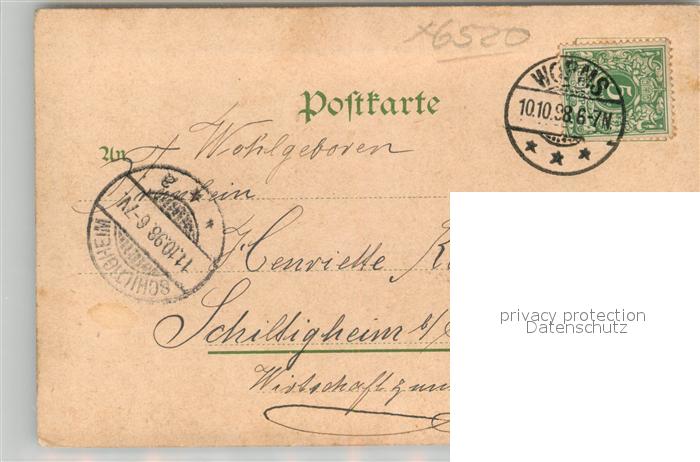 x6520
WORMS
10.10.98.6-7N
5
Postkarte
An Wohlgeboren
Henriette
Schiltigheim b/
Wirtschaft zum
SCHILTIGHEIM
11.10.98 6-7V
a
privacy protection
Datenschutz